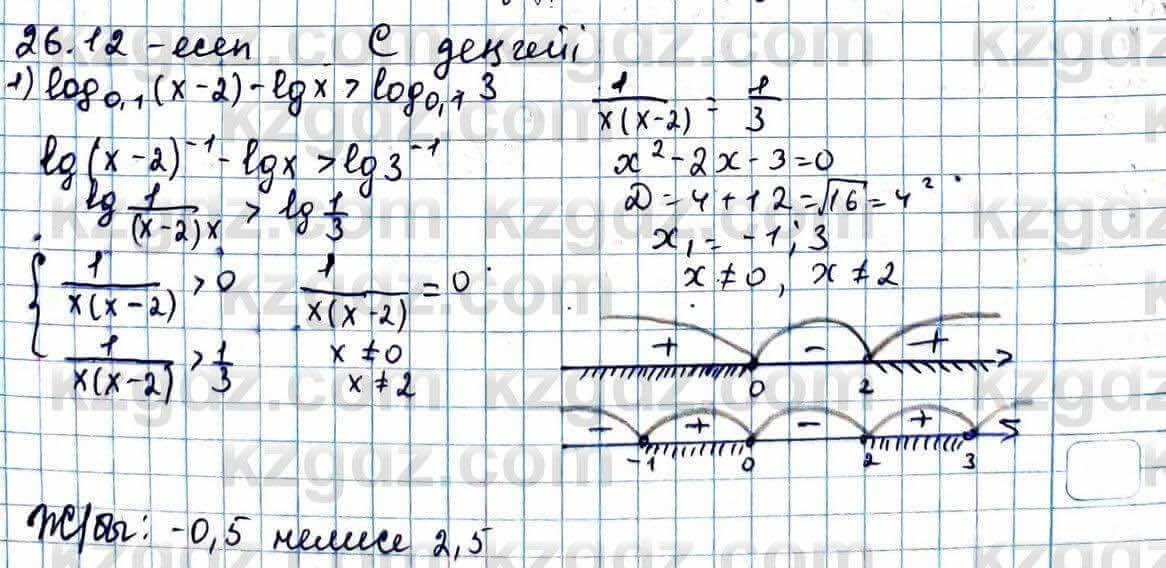 26.12 -есеп С деңгейі
1) log₀,₁(x-2) - lg x > log₀,₁ 3
lg(x-2)⁻¹ - lg x > lg 3⁻¹
lg 1/((x-2)x) > lg 1/3
{ 1/(x(x-2)) > 0
1/(x(x-2)) > 1/3
1/(x(x-2)) = 0
x ≠ 0
x ≠ 2
1/(x(x-2)) = 1/3
x² - 2x - 3 = 0
D = 4 + 12 = √16 = 4²
x₁ = -1; 3
x ≠ 0, x ≠ 2
+ - +
0 2
- + - + 
-1 0 2 3
Ж/бы: -0,5 немесе 2,5
kzgdz.com